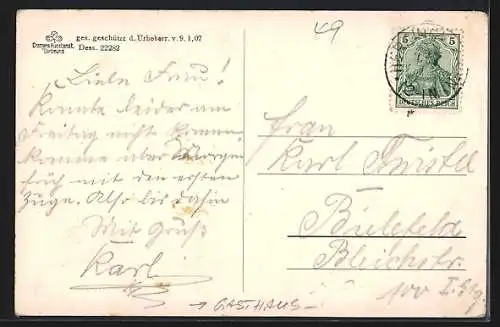 ges. geschützt d. Urheberr. v. 9. 1. 07
Dess. 22282
49
5 5
DEUTSCHES REICH
Liebe Frau!
Konnte leider am
Freitag nicht kommen
komme aber Morgen
früh mit den ersten
Zuge. Also bis dahin
Mit Gruß
Karl
Frau
Karl
Bielefeld
Bleichstr.
100 I. Etg.
→ GASTHAUS –